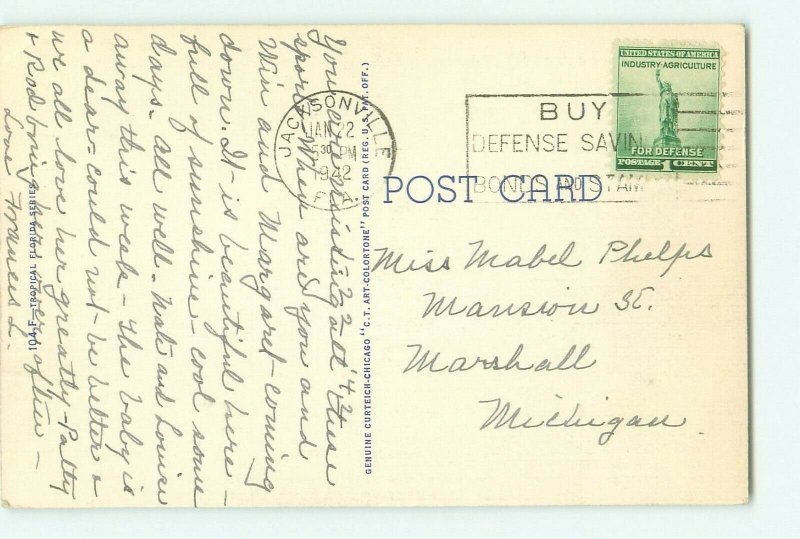 1-22-'42
You are missing out these
sports. When are you and
Win and Margaret coming
down. It is beautiful here -
full of sunshine - cool some
days. All well. Nate and Louise
away this week - The baby is
a dear - could not be better &
we all love her greatly - Patty
& Rod bring her over often -
Love Frances L.
104-F TROPICAL FLORIDA SERIES
GENUINE CURTEICH-CHICAGO "C.T. ART-COLORTONE" POST CARD (REG. U.S. PAT. OFF.)
JACKSONVILLE
JAN 22
530 PM
1942
FLA.
BUY
DEFENSE SAVIN
BONDS AND STAM
UNITED STATES OF AMERICA
INDUSTRY-AGRICULTURE
FOR DEFENSE
POSTAGE 1 CENT
POST CARD
Miss Mabel Phelps
Mansion St.
Marshall
Michigan.